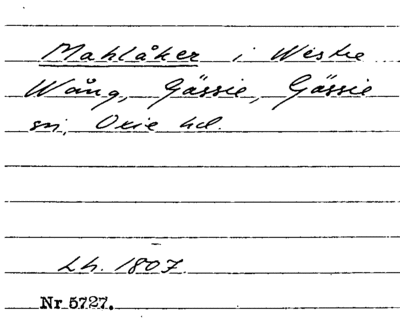 Mahlåker i Westre
Wång, Gässie, Gässie
sn, Oxie hd.
Lh. 1807
Nr 5727.